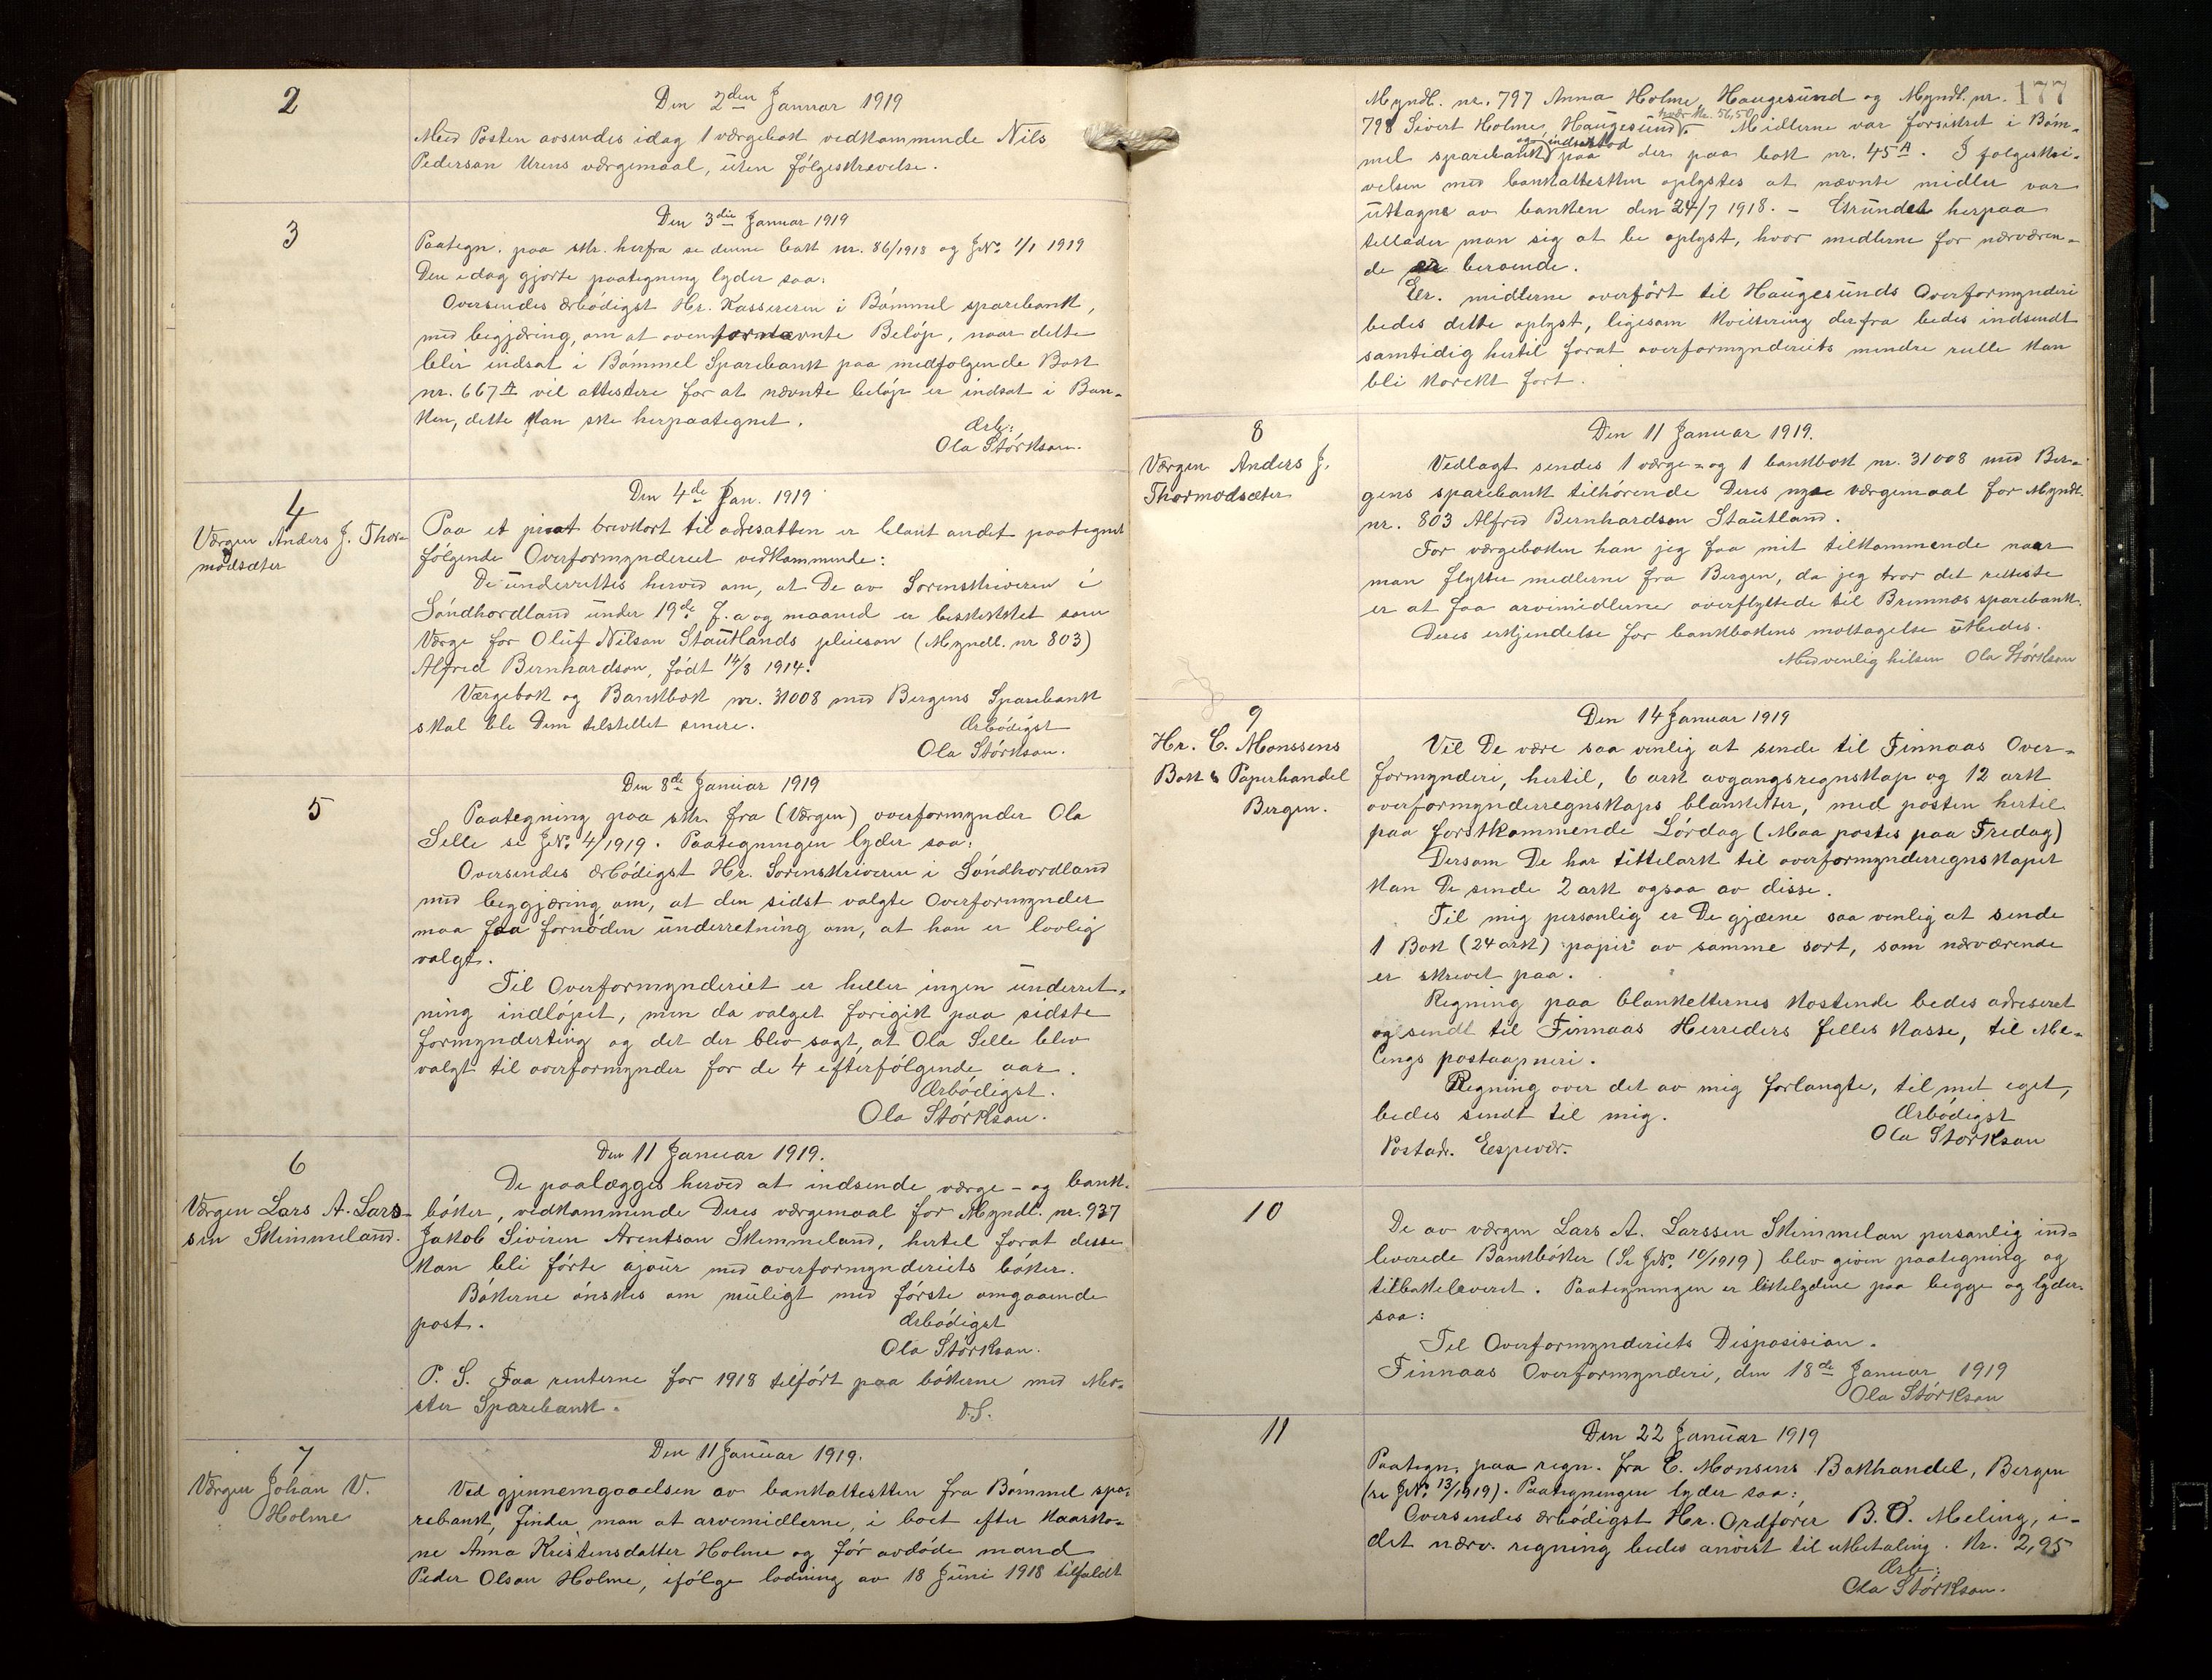 2
Den 2den Januar 1919
Med Posten avsendes idag 1 værgebok vedkommende Nils
Pederson Urens værgemaal, uten følgeskrevelse.
3
Den 3die Januar 1919
Paategn. paa skr. herfra se denne bok nr. 86/1918 og JNo. 1/1 1919
Den idag gjorte paategning lyder saa:
Oversendes ærbödigst Hr. Kassereren i Bömmel sparebank,
med begjæring, om at ovenfornævnte Belöp, naar dette
blir indsat i Bömmel Sparebank paa medfolgende Bok
nr. 667 A vil attestere for at nævnte belöp er indsat i Ban-
ken, dette kan ske herpaategnet.
Ærb:
Ola Störkson.
4
Værgen Anders J. Thor-
modsæter
Den 4de Jan. 1919
Paa et privat brevkort til adresatten er blant andet paategnet
fölgende Overformynderiet vedkommende:
De underrettes herved om, at De av Sorenskriveren i
Söndhordland under 19de f. a og maaned er beskikket som
Værge for Oluf Nilson Stautlands pleieson (Myndl. nr 803)
Alfred Bernhardson, født 14/8 1914.
Værgebok og Bankbok nr. 31008 med Bergens Sparebank
skal bli Dem tilstellet senere.
Ærbödigst
Ola Störkson.
5
Den 8de Januar 1919
Paategning paa skr. fra (Værgen) overformynder Ola
Selle se JNo. 4/1919. Paategningen lyder saa:
Oversendes ærbödigst Hr. Sorenskriveren i Söndhordland
med beggjæring om, at den sidst valgte Overformynder
maa faa fornöden underretning om, at han er lovlig
valgt.
Til Overformynderiet er heller ingen underret-
ning indlöpet, men da valget forigik paa sidste
formynderting og det der blev sagt, at Ola Selle blev
valgt til overformynder for de 4 efterfölgende aar.
Ærbödigst.
Ola Störkson.
6
Værgen Lars A. Lars-
sen Skimmeland.
Den 11 Januar 1919.
De paalægges herved at indsende værge- og bank-
böker, vedkommende Deres værgemaal for Myndl. nr. 937
Jakob Siviren Arentson Skimmeland, hertil forat disse
kan bli förte ajour med overformynderiets böker.
Bökerne önskes om muligt med förste omgaaende
post.
Ærbödigst
Ola Störkson.
P. S. Faa renterne for 1918 tilfört paa bökerne med Mos-
ster Sparebank.
D.S.
7
Værgen Johan V.
Holme
Den 11 Januar 1919.
Ved gjennemgaaelsen av bankattesten fra Bömmel spa-
rebank, finder man at arvemidlerne, i boet efter Kaarko-
ne Anna Kristensdatter Holme og för avdöde mand
Peder Olson Holme, efölge lodning av 18 Juni 1918 tilfaldt
177
Myndl. nr. 797 Anna Holme, Haugesund og Myndl. nr.
hver kr. 56,50
798 Sivert Holme, Haugesund. Midlerne var forsikret i Böm-
og indestod
mel sparebank paa der paa bok nr. 45 A. I folgeskri-
velsen med bankattesten oplystes at nævnte midler var
uttagne av banken den 24/7 1918. - Grundet herpaa
tillader man sig at be oplyst, hvor midlerne for nærværen-
de er beroende.
Er. midlerne overfört til Haugesunds Overformynderi
bedes dette oplyst, ligesom kvittering derfra bedes indsendt
samtidig hertil forat overformynderiets mindre rulle kan
bli korekt fort.
8
Værgen Anders J.
Thormodsæter
Den 11 Januar 1919.
Vedlagt sendes 1 værge- og 1 bankbok nr. 31008 med Ber-
gens sparebank tilhörende Deres nye værgemaal for Myndl.
nr. 803 Alfred Bernhardson Stautland.
For værgeboken kan jeg faa mit tilkommende naar
man flytter medlerne fra Bergen, da jeg tror det retteste
er at faa arvimidlerne overflyttede til Bremnes sparebank.
Deres erkjendelse for bankbokens mottagelse utbedes.
Med venlig hilsen Ola Störkson
9
Hr. C. Monssens
Bok & Papirhandel
Bergen.
Den 14 Januar 1919
Vil De være saa venlig at sende til Finnaas Over-
formynderi, hertil, 6 ark avgangsregnskap og 12 ark
overformynderregnskaps blanketter, med posten hertil
paa forstkommende Lördag (Maa postes paa Fredag)
Dersom De har tittelark til overformynderregnskapet
kan De sende 2 ark ogsaa av disse.
Til mig personlig er De gjærne saa venlig at sende
1 Bok (24 ark) papir av samme sort, som nærværende
er skrevet paa.
Regning paa blanketternes kostende bedes adreseret
og sendt til Finnaas Herreders felles kasse, til Me-
lings postaapneri.
Regning over det av mig forlangte, til met eget,
bedes sendt til mig.
Ærbödigst
Ola Störkson
Postadr. Espevær.
10
De av værgen Lars A. Larssen Skimmelan personlig ind-
leverede Bankböker (Se JNo. 10/1919) blev given paategning og
tilbakeleveret. Paategningen er likelydene paa begge og lyder
saa:
Til Overformynderiets Disposision.
Finnaas Overformynderi, den 18de Januar 1919
Ola Störkson
11
Den 22 Januar 1919
Paategn. paa regn. fra C. Monsens Bokhandel, Bergen
(se JNo. 13/1919). Paategningen lyder saa:
Oversendes ærbödigst Hr. Ordfører B. O. Meling, i-
det nærv. regning bedes anvist til utbetaling. Kr. 2,95
Ærb:
Ola Störkson.